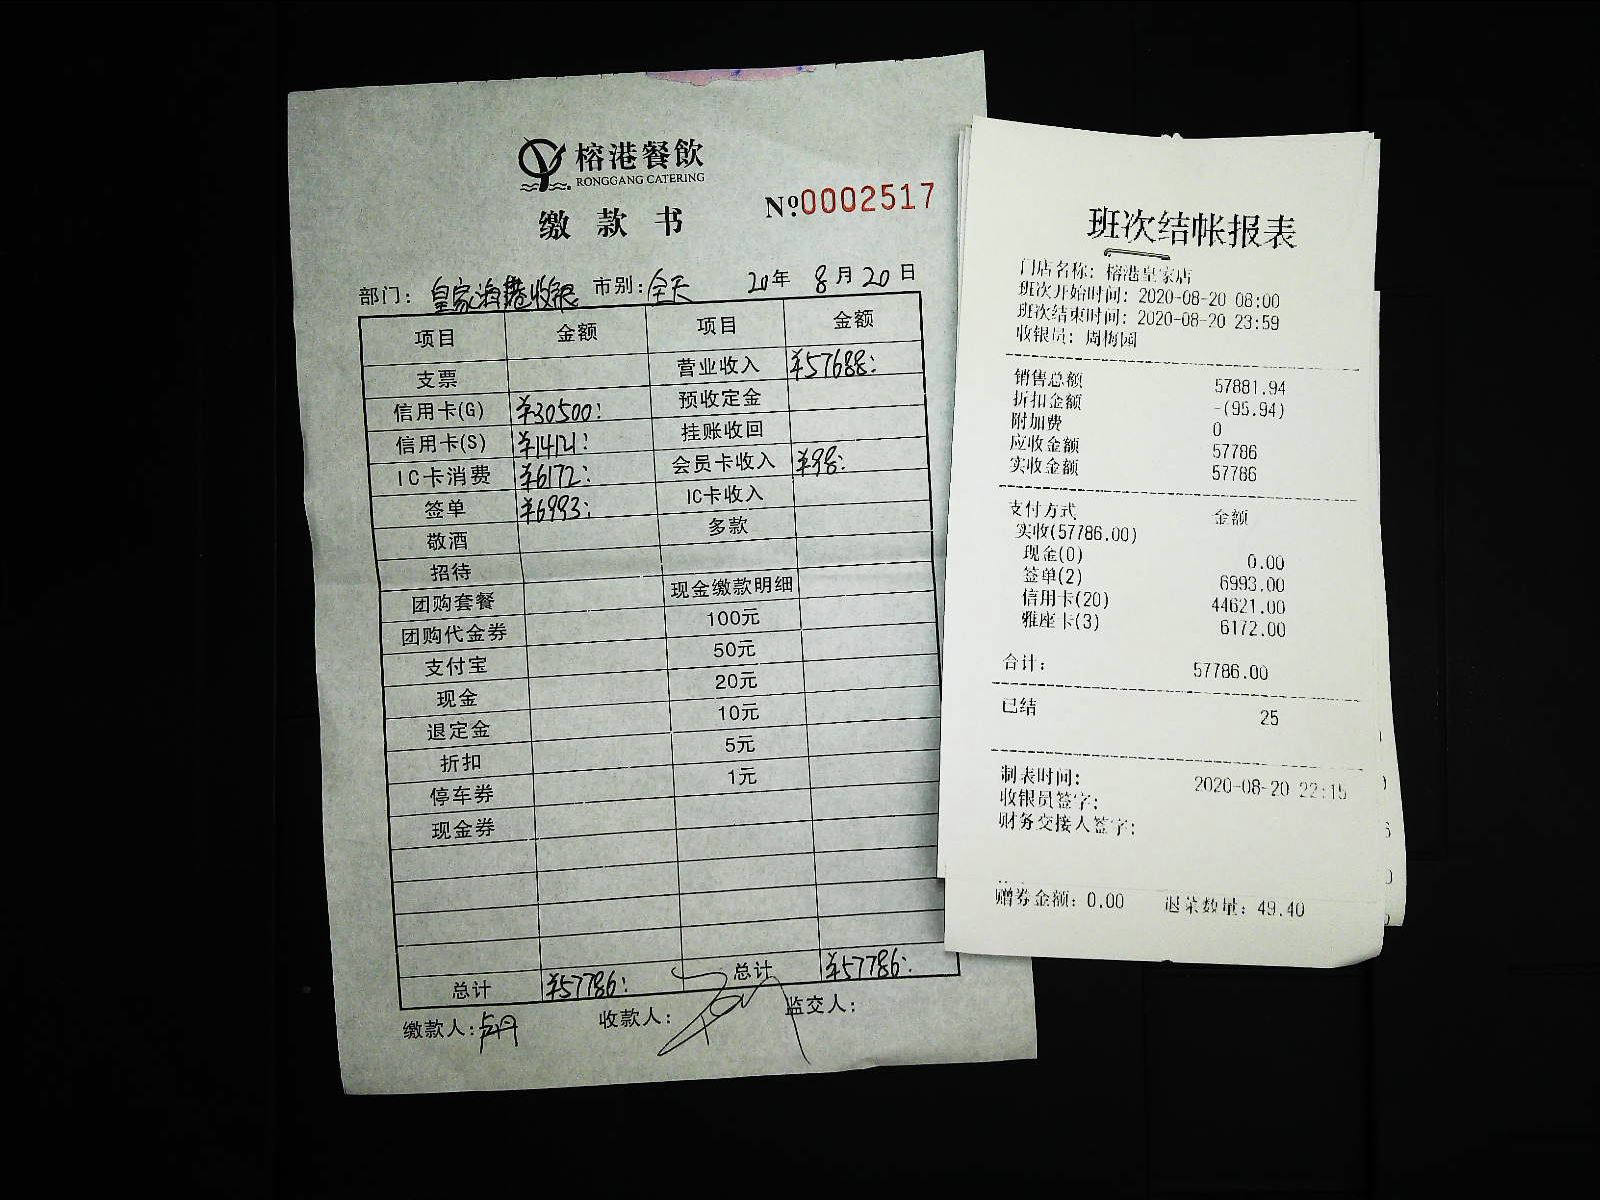 榕港餐飲
RONGGANG CATERING
缴款书
No.0002517
部门：皇家海港收银 市别：全天 20年8月20日
项目 金额 项目 金额
支票 营业收入 ¥57688：
信用卡(G) ¥30500： 预收定金
信用卡(S) ¥14121： 挂账收回
IC卡消费 ¥6172： 会员卡收入 ¥98：
签单 ¥6993： IC卡收入
敬酒 多款
招待
团购套餐 现金缴款明细
团购代金券 100元
支付宝 50元
现金 20元
退定金 10元
折扣 5元
停车券 1元
现金券
总计 ¥57786： 总计 ¥57786：
缴款人： 收款人： 监交人：
班次结帐报表
门店名称：榕港皇家店
班次开始时间：2020-08-20 08:00
班次结束时间：2020-08-20 23:59
收银员：周梅园
销售总额 57881.94
折扣金额 -(95.94)
附加费 0
应收金额 57786
实收金额 57786
支付方式 金额
实收(57786.00)
现金(0) 0.00
签单(2) 6993.00
信用卡(20) 44621.00
雅座卡(3) 6172.00
合计： 57786.00
已结 25
制表时间： 2020-08-20 22:15
收银员签字：
财务交接人签字：
赠券金额：0.00 退菜数量：49.40